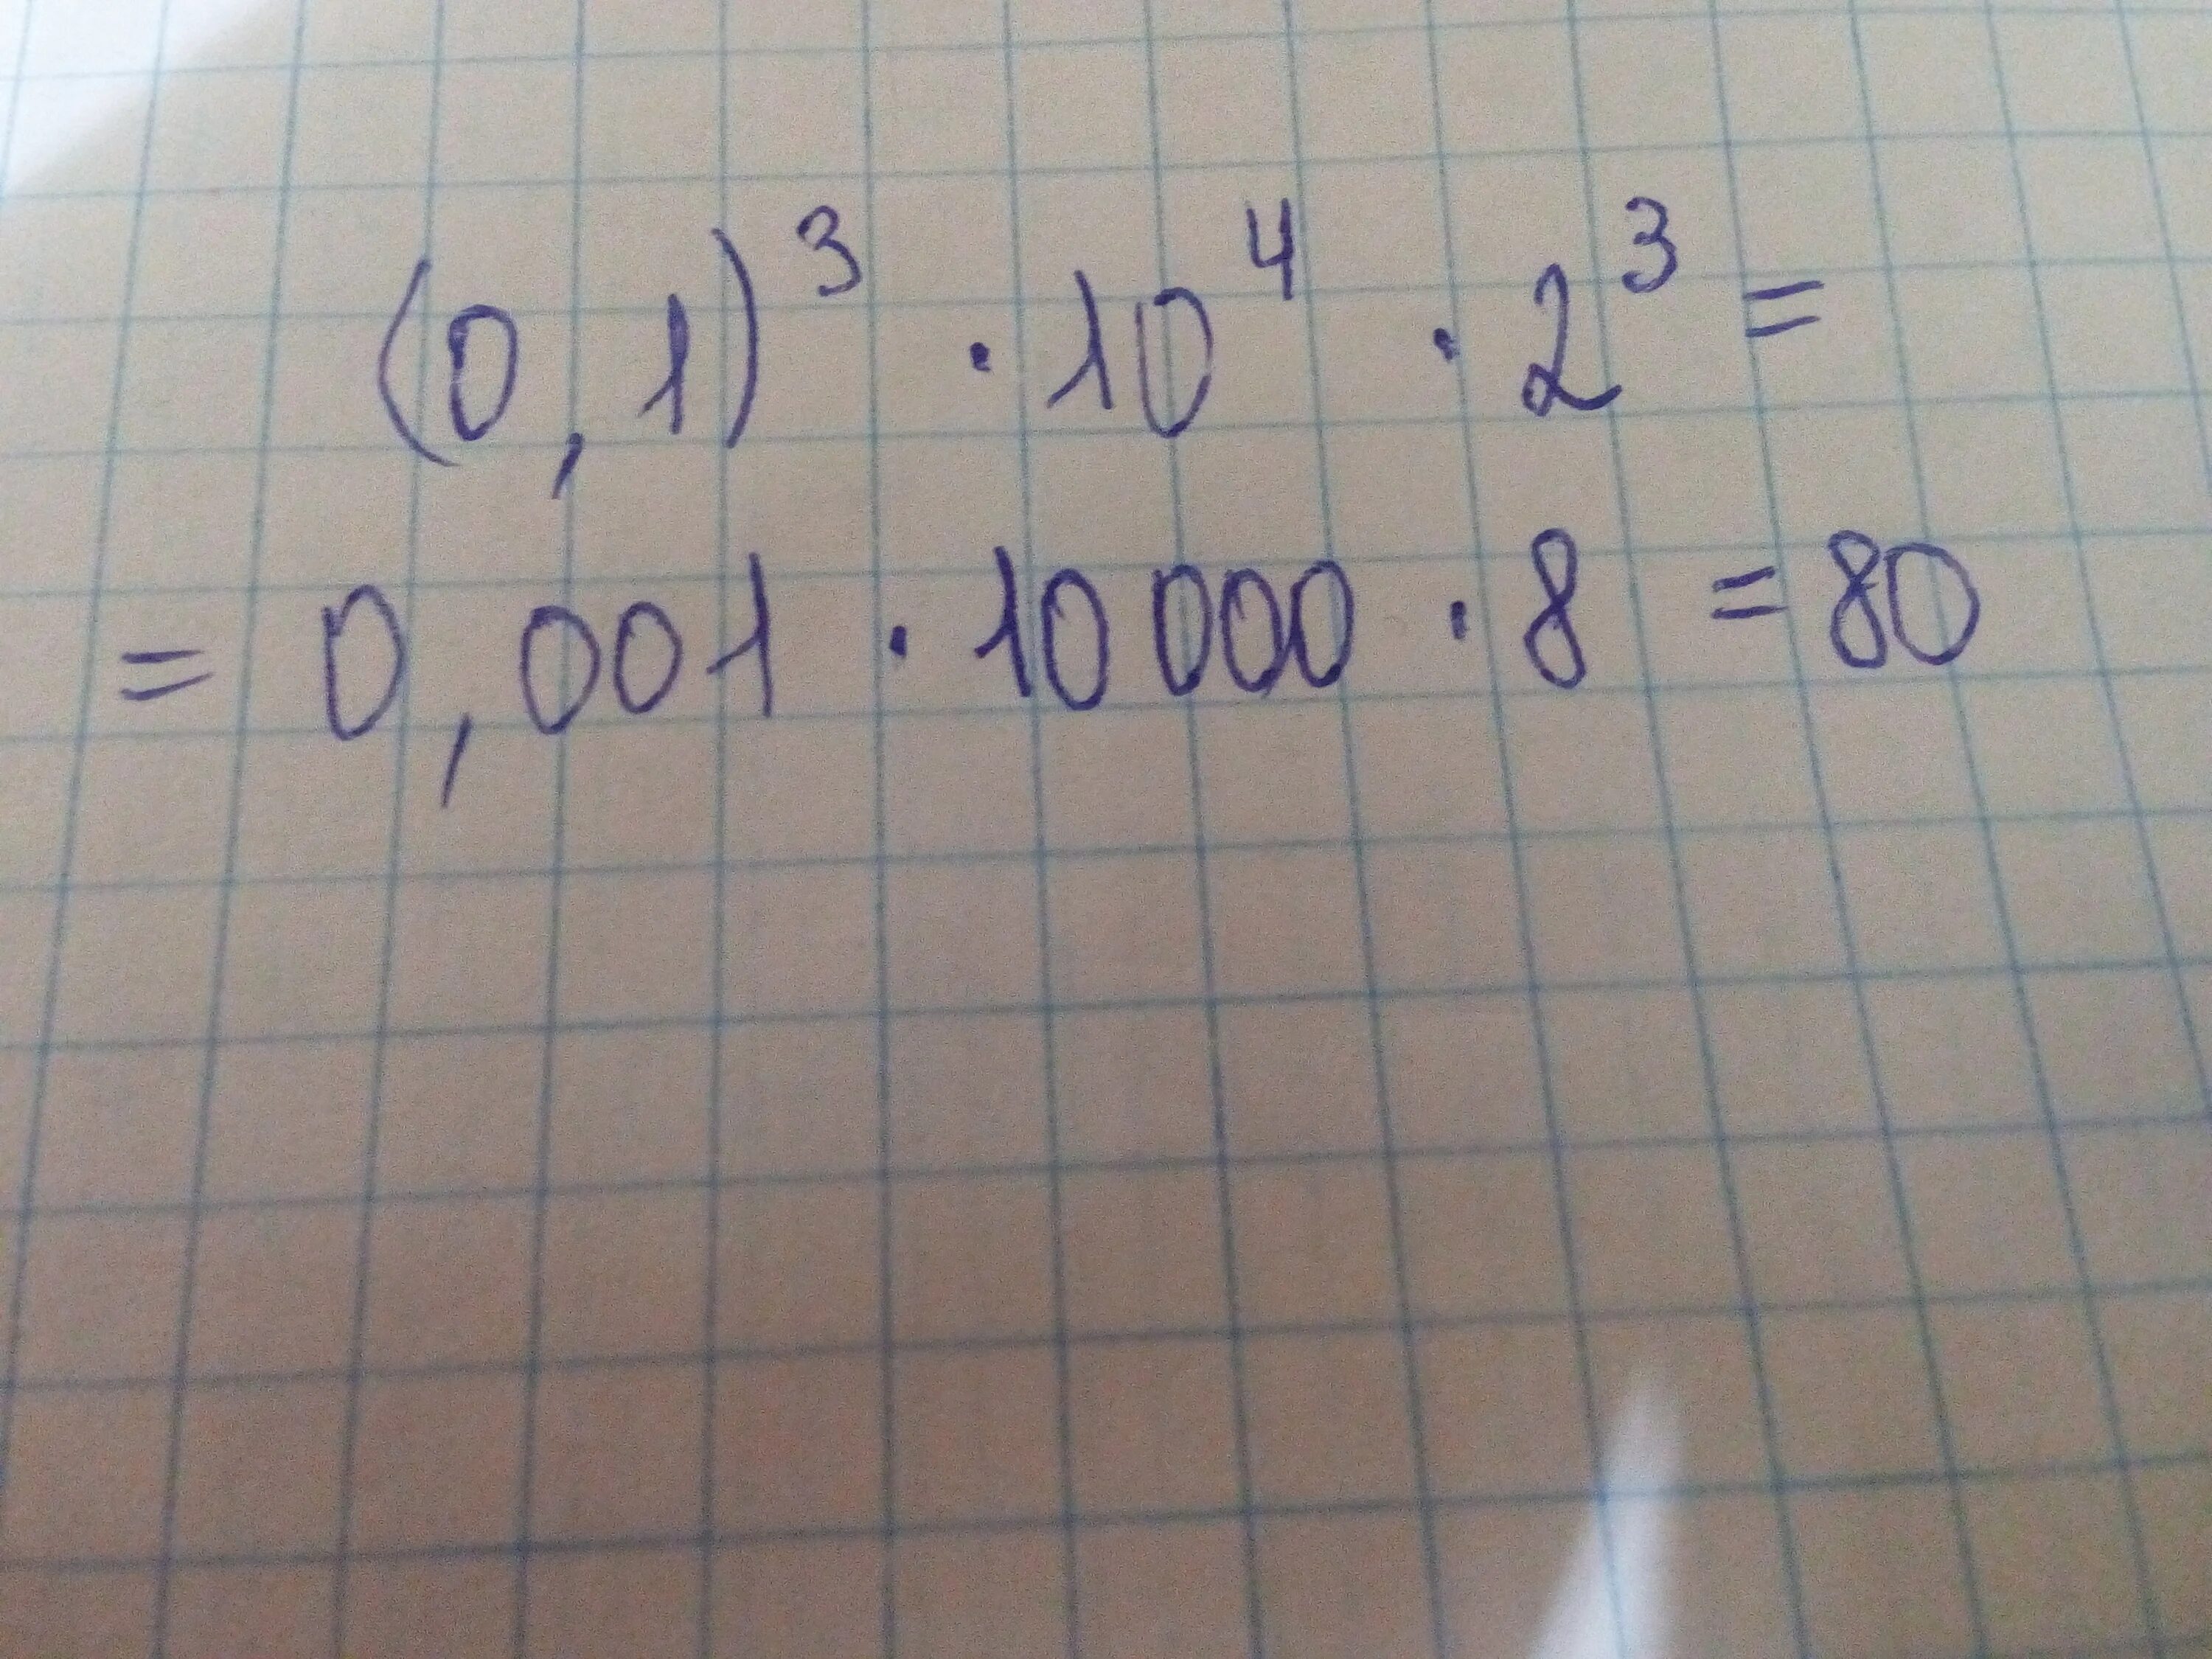 (0,1)³ · 10⁴ · 2³ =
= 0,001 · 10 000 · 8 = 80